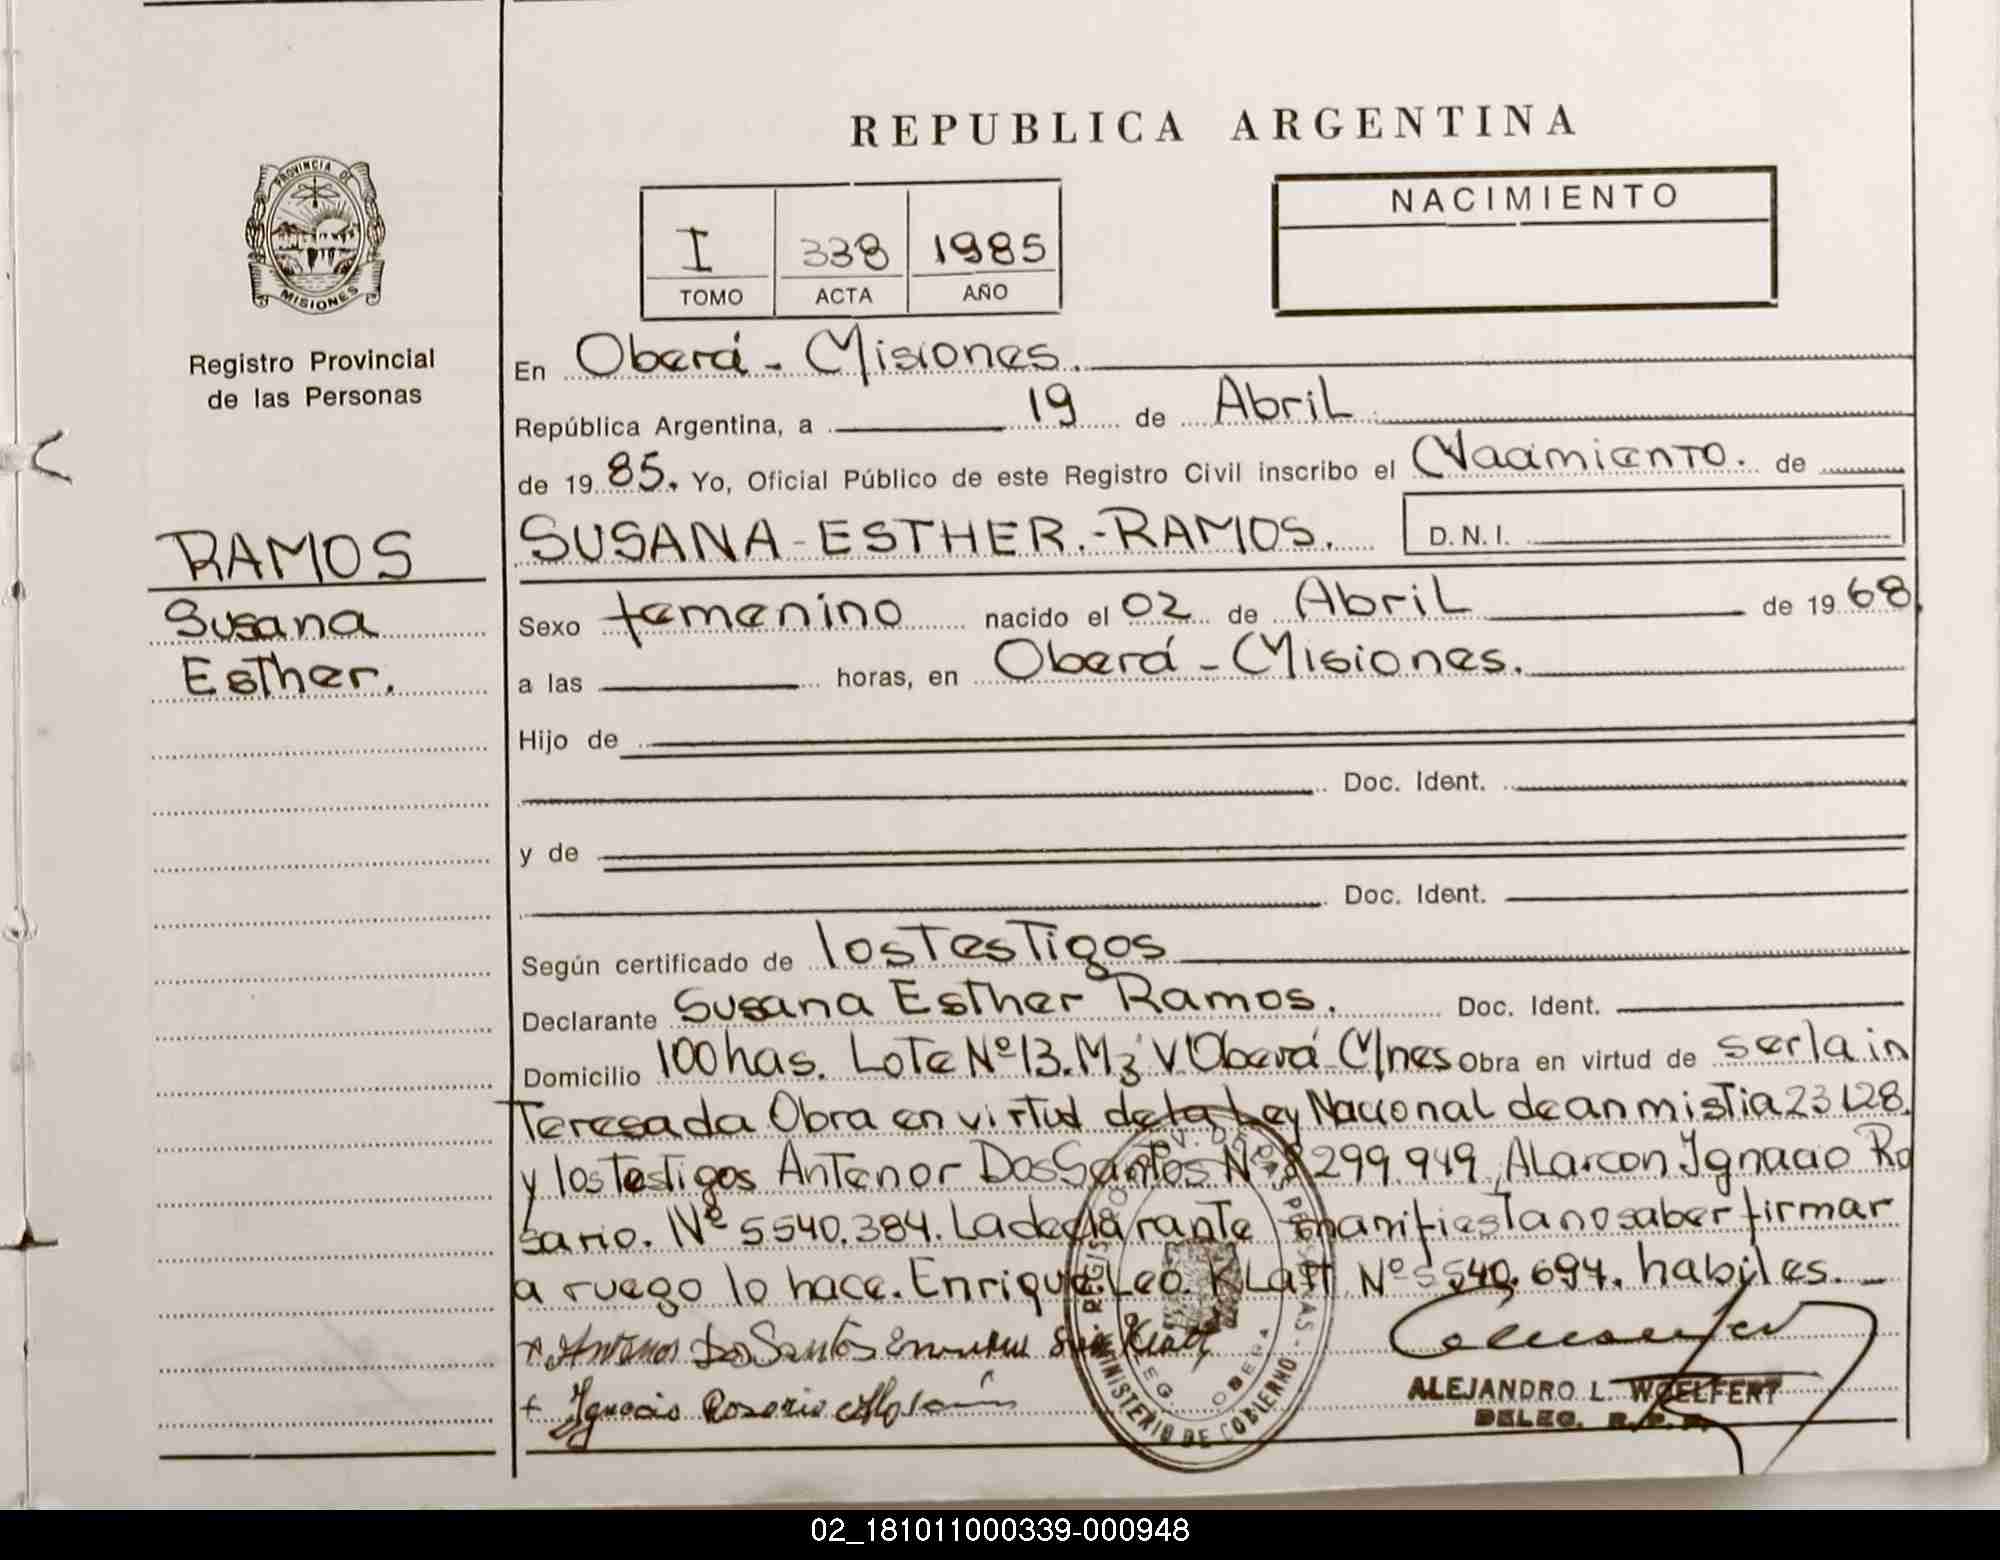 REPUBLICA ARGENTINA
PROVINCIA DE
MISIONES
Registro Provincial
de las Personas
RAMOS
Susana
Esther.
I 338 1985
TOMO ACTA AÑO
NACIMIENTO
En Oberá - Misiones.
República Argentina, a 19 de Abril
de 19 85. Yo, Oficial Público de este Registro Civil inscribo el Nacimiento. de
SUSANA - ESTHER.- RAMOS. D.N.I.
Sexo femenino nacido el 02 de Abril de 19 68.
a las horas, en Oberá - Misiones.
Hijo de
Doc. Ident.
y de
Doc. Ident.
Según certificado de los Testigos
Declarante Susana Esther Ramos. Doc. Ident.
Domicilio 100 has. Lote Nº 13. Mz V Oberá Mnes Obra en virtud de ser la in
Teresada Obra en virtud de la Ley Nacional de anmistia 23128.
y los Testigos Antenor Dos Santos Nº 8299.949, Alarcon Ignacio Ro
sario. Nº 5540.384. La declarante manifiesta no saber firmar
a ruego lo hace. Enrique Leo. Klatt Nº 5540.694. habiles.
Antenor Dos Santos
Ignacio Rosario Alarcón
MINISTERIO DE GOBIERNO
OBERA
ALEJANDRO L. WOELFERT
DELEG. R.P.P.
02_181011000339-000948